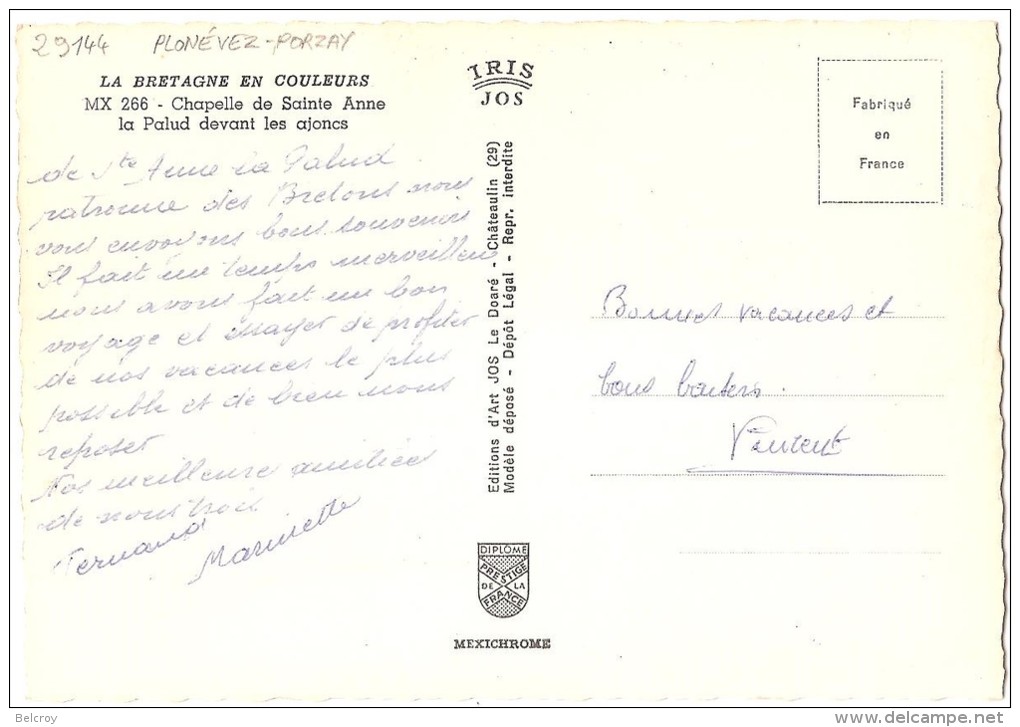 29144 PLONÉVEZ-PORZAY
LA BRETAGNE EN COULEURS
MX 266 - Chapelle de Sainte Anne
la Palud devant les ajoncs
IRIS
JOS
Fabriqué
en
France
de Ste Anne la Palud
patronne des Bretons nous
vous envoyons bons souvenirs
Il fait un temps merveilleux
nous avons fait un bon
voyage et essayer de profiter
de nos vacances le plus
possible et de bien nous
reposer
Nos meilleure amitiées
de nous trois
Fernand
Marinette
Editions d'Art JOS Le Doaré - Châteaulin (29)
Modèle déposé - Dépôt Légal - Repr. interdite
Bonnes vacances et
bons baisers.
Vincent
DIPLÔME
PRESTIGE
DE LA
FRANCE
MEXICHROME
Belcroy
www.delcampe.net